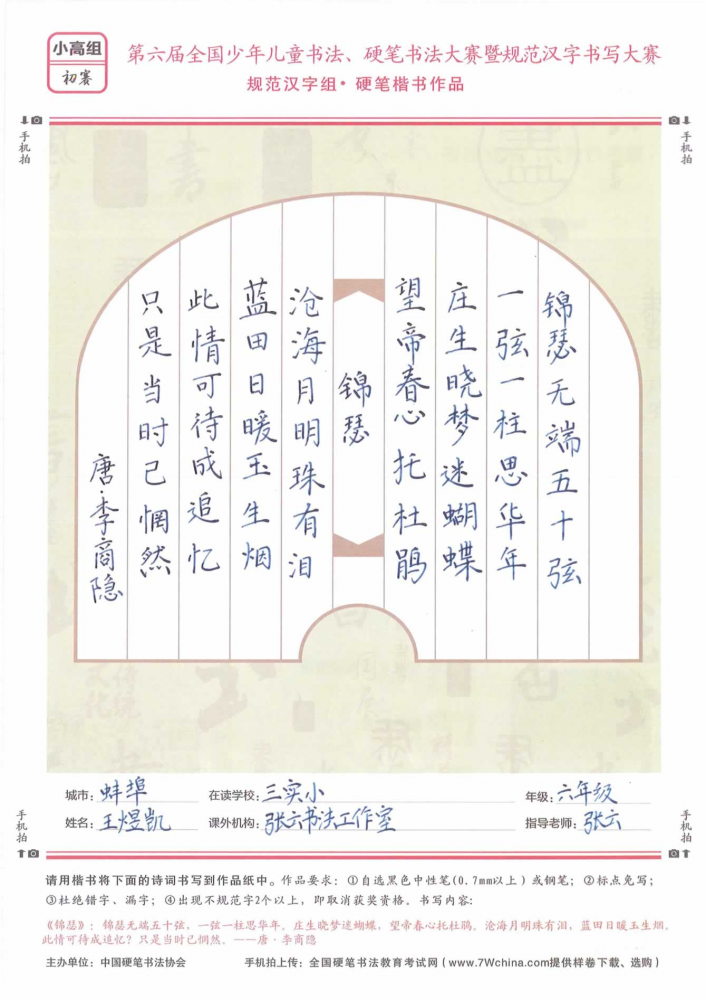 小高组
初赛
第六届全国少年儿童书法、硬笔书法大赛暨规范汉字书写大赛
规范汉字组·硬笔楷书作品
手机拍
手机拍
锦瑟无端五十弦
一弦一柱思华年
庄生晓梦迷蝴蝶
望帝春心托杜鹃
锦瑟
沧海月明珠有泪
蓝田日暖玉生烟
此情可待成追忆
只是当时已惘然
唐·李商隐
城市：蚌埠 在读学校：三实小 年级：六年级
姓名：王煜凯 课外机构：张云书法工作室 指导老师：张云
手机拍
手机拍
请用楷书将下面的诗词书写到作品纸中。作品要求：①自选黑色中性笔(0.7mm以上)或钢笔；②标点免写；
③杜绝错字、漏字；④出现不规范字2个以上，即取消获奖资格。书写内容：
《锦瑟》：锦瑟无端五十弦，一弦一柱思华年。庄生晓梦迷蝴蝶，望帝春心托杜鹃。沧海月明珠有泪，蓝田日暖玉生烟。
此情可待成追忆？只是当时已惘然。——唐·李商隐
主办单位：中国硬笔书法协会 手机拍上传：全国硬笔书法教育考试网(www.7Wchina.com提供样卷下载、选购)